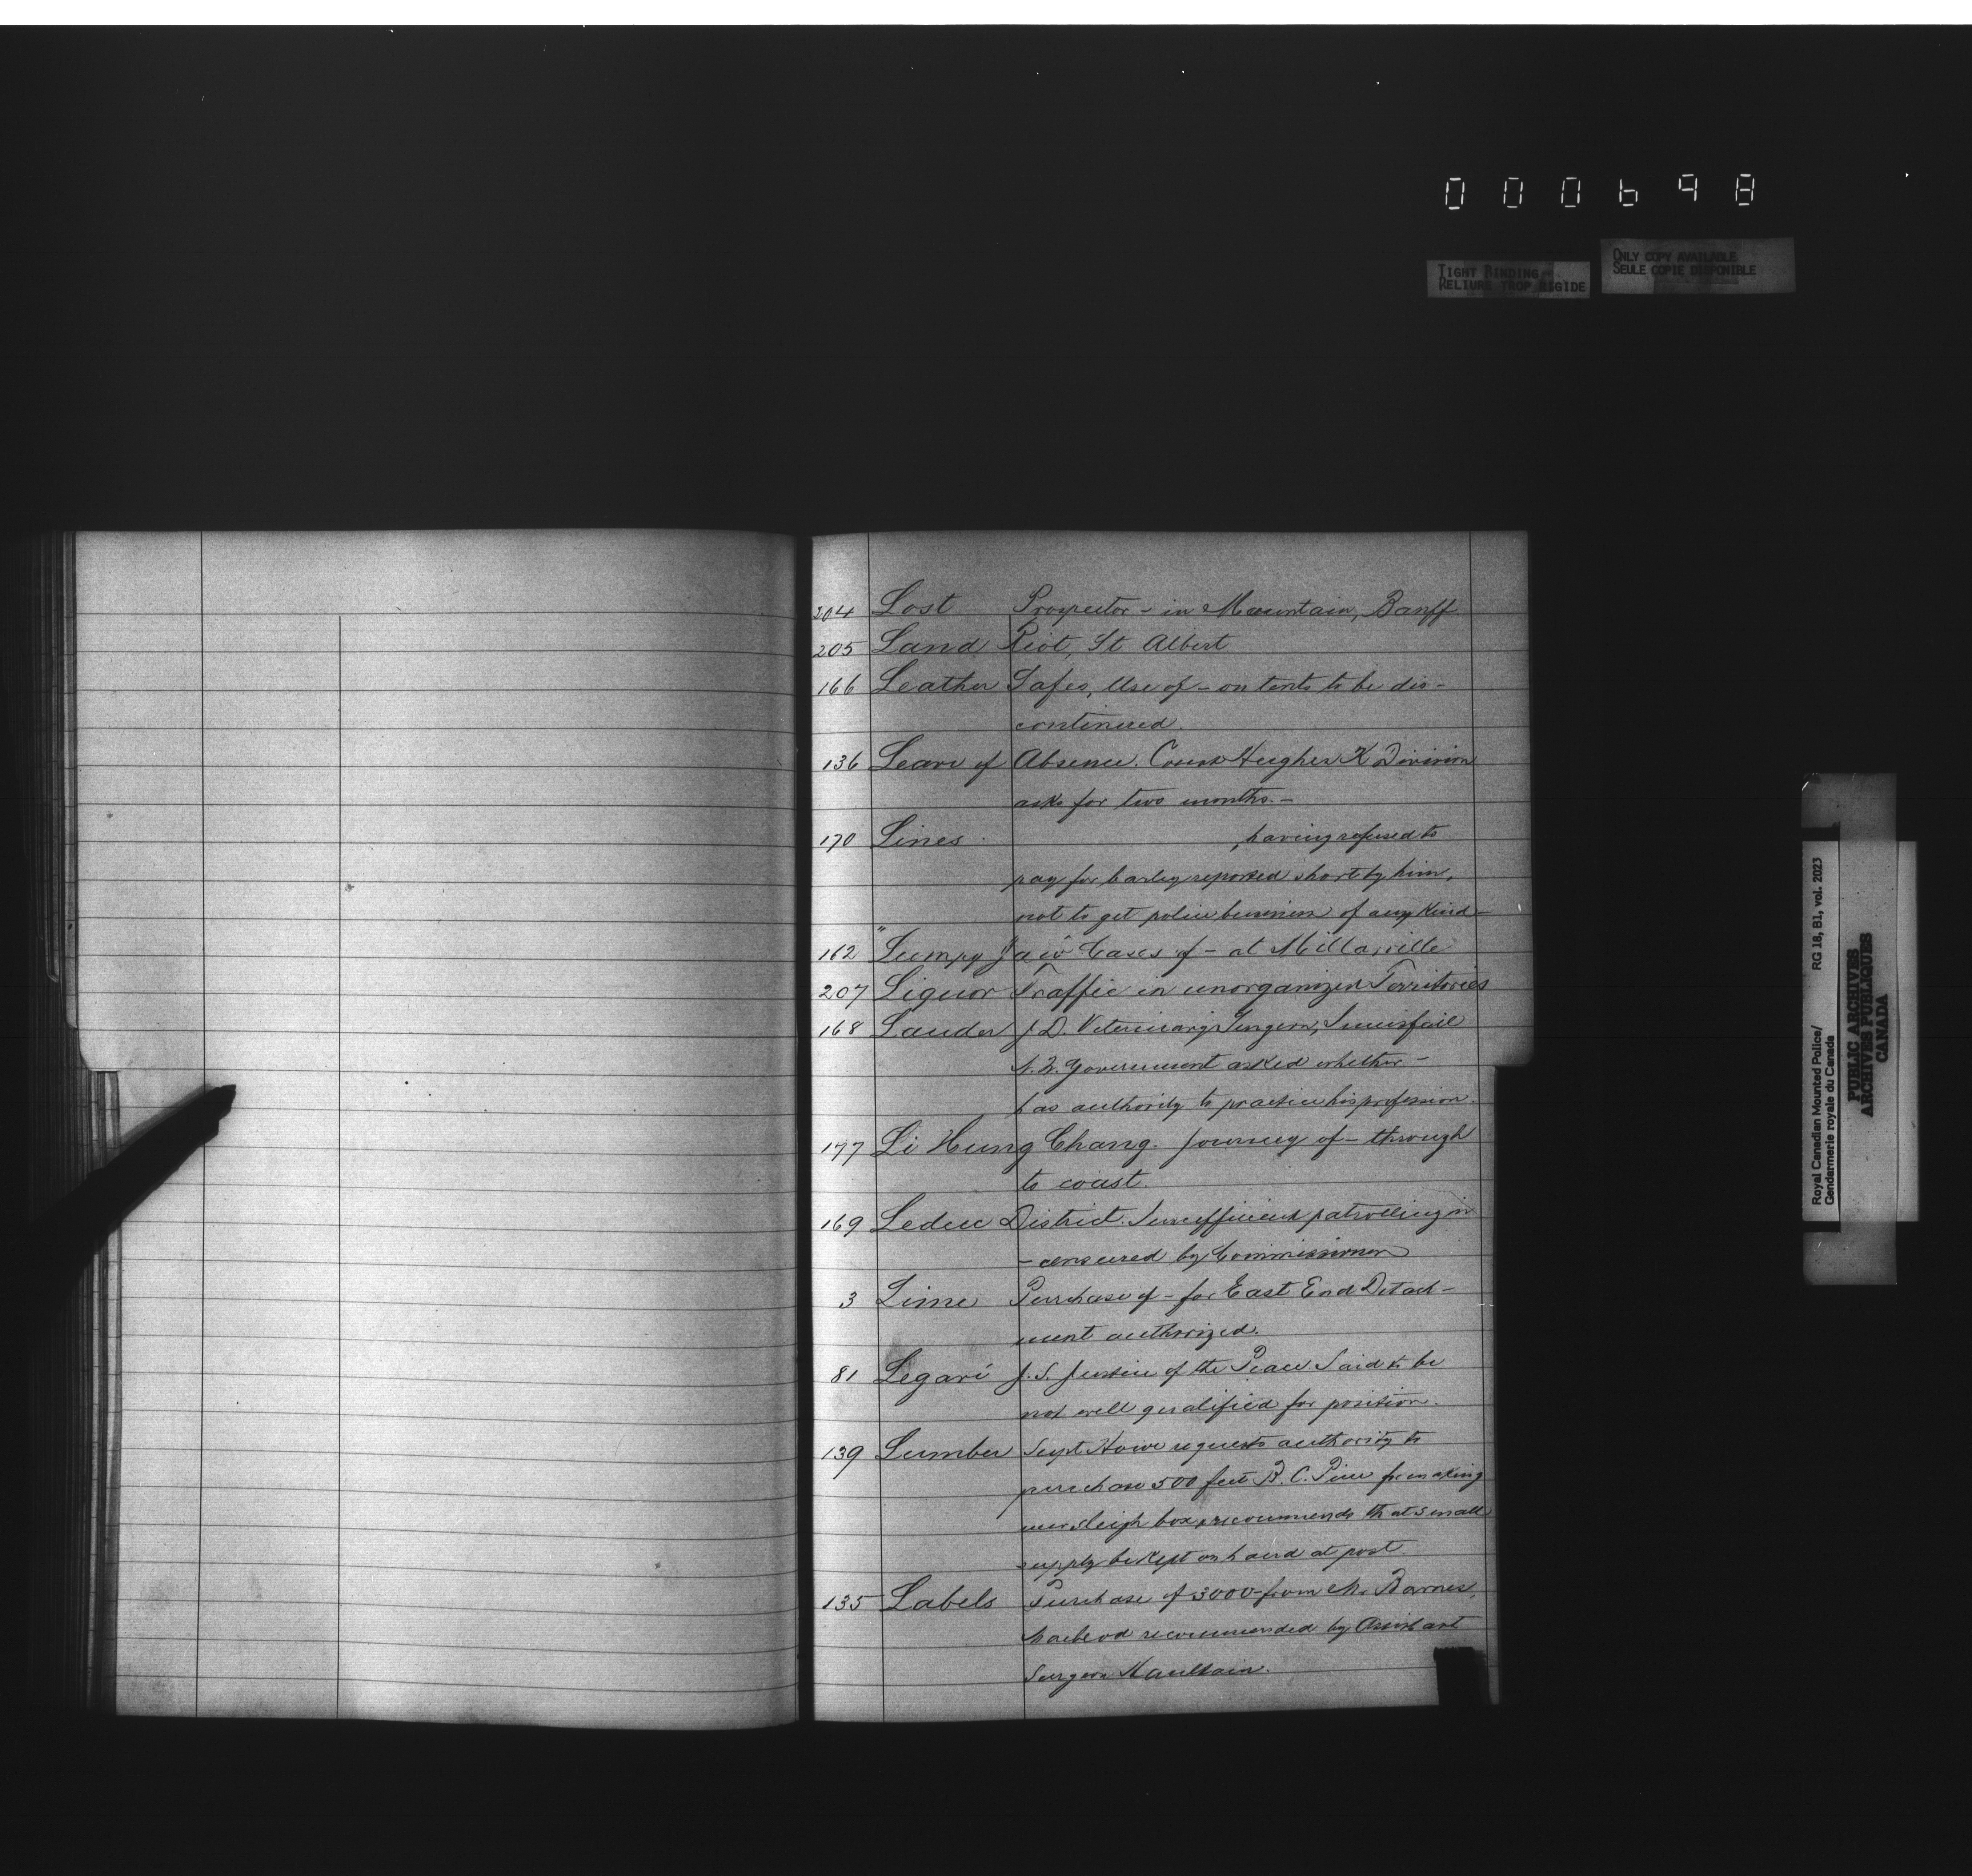 000698
TIGHT BINDING
RELIURE TROP RIGIDE
ONLY COPY AVAILABLE
SEULE COPIE DISPONIBLE
204 Lost Prospector - in Mountain, Banff
205 Land Riot, St Albert
166 Leather Safes, Use of - on tents to be dis-
continued.
136 Leave of Absence. Const Hughes K Division
asks for two months. -
170 Lines , having refused to
pay for barley reported short by him,
not to get police business of any kind -
162 "Lumpy Jaw" Cases of - at Millarville
207 Liquor Traffic in unorganized Territories
168 Lauder J. D. Veterinary Surgeon, Innisfail
N.W. Government asked whether -
has authority to practice his profession.
177 Li Hung Chang. Journey of - through
to coast.
169 Leduc District. Insufficient patrolling in
- censured by Commissioner
3 Lime Purchase of - for East End Detach-
ment authorized.
81 Legaré J. S. Justice of the Peace Said to be
not well qualified for position.
139 Lumber Supt Howe requests authority to
purchase 500 feet B. C. Pine for making
new sleigh box, recommends that small
supply be kept on hand at post.
135 Labels Purchase of 3000 - from Mr. Barnes,
Macleod recommended by Assistant
Surgeon Haultain.
Royal Canadian Mounted Police/ RG 18, B1, vol. 2023
Gendarmerie royale du Canada
PUBLIC ARCHIVES
ARCHIVES PUBLIQUES
CANADA